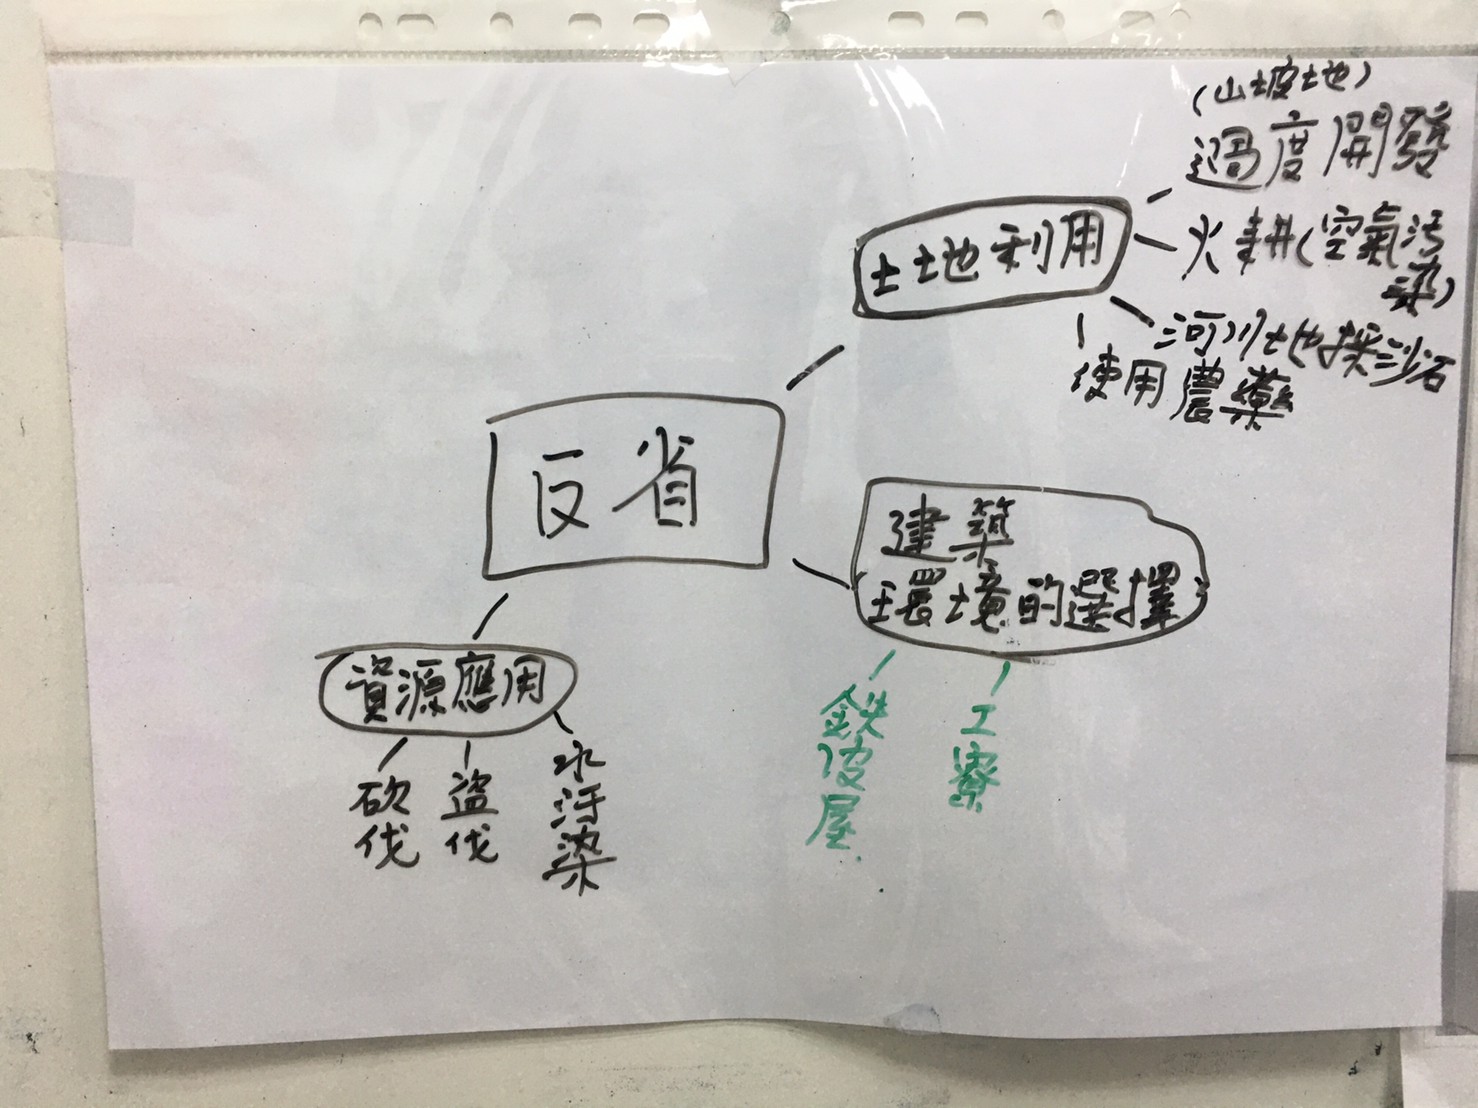 (山坡地)
過度開發
火耕(空氣污
染)
河川地採沙石
使用農藥
土地利用
反省
建築
環境的選擇
鉄皮屋
工寮
資源應用
砍伐
盜伐
水汙染